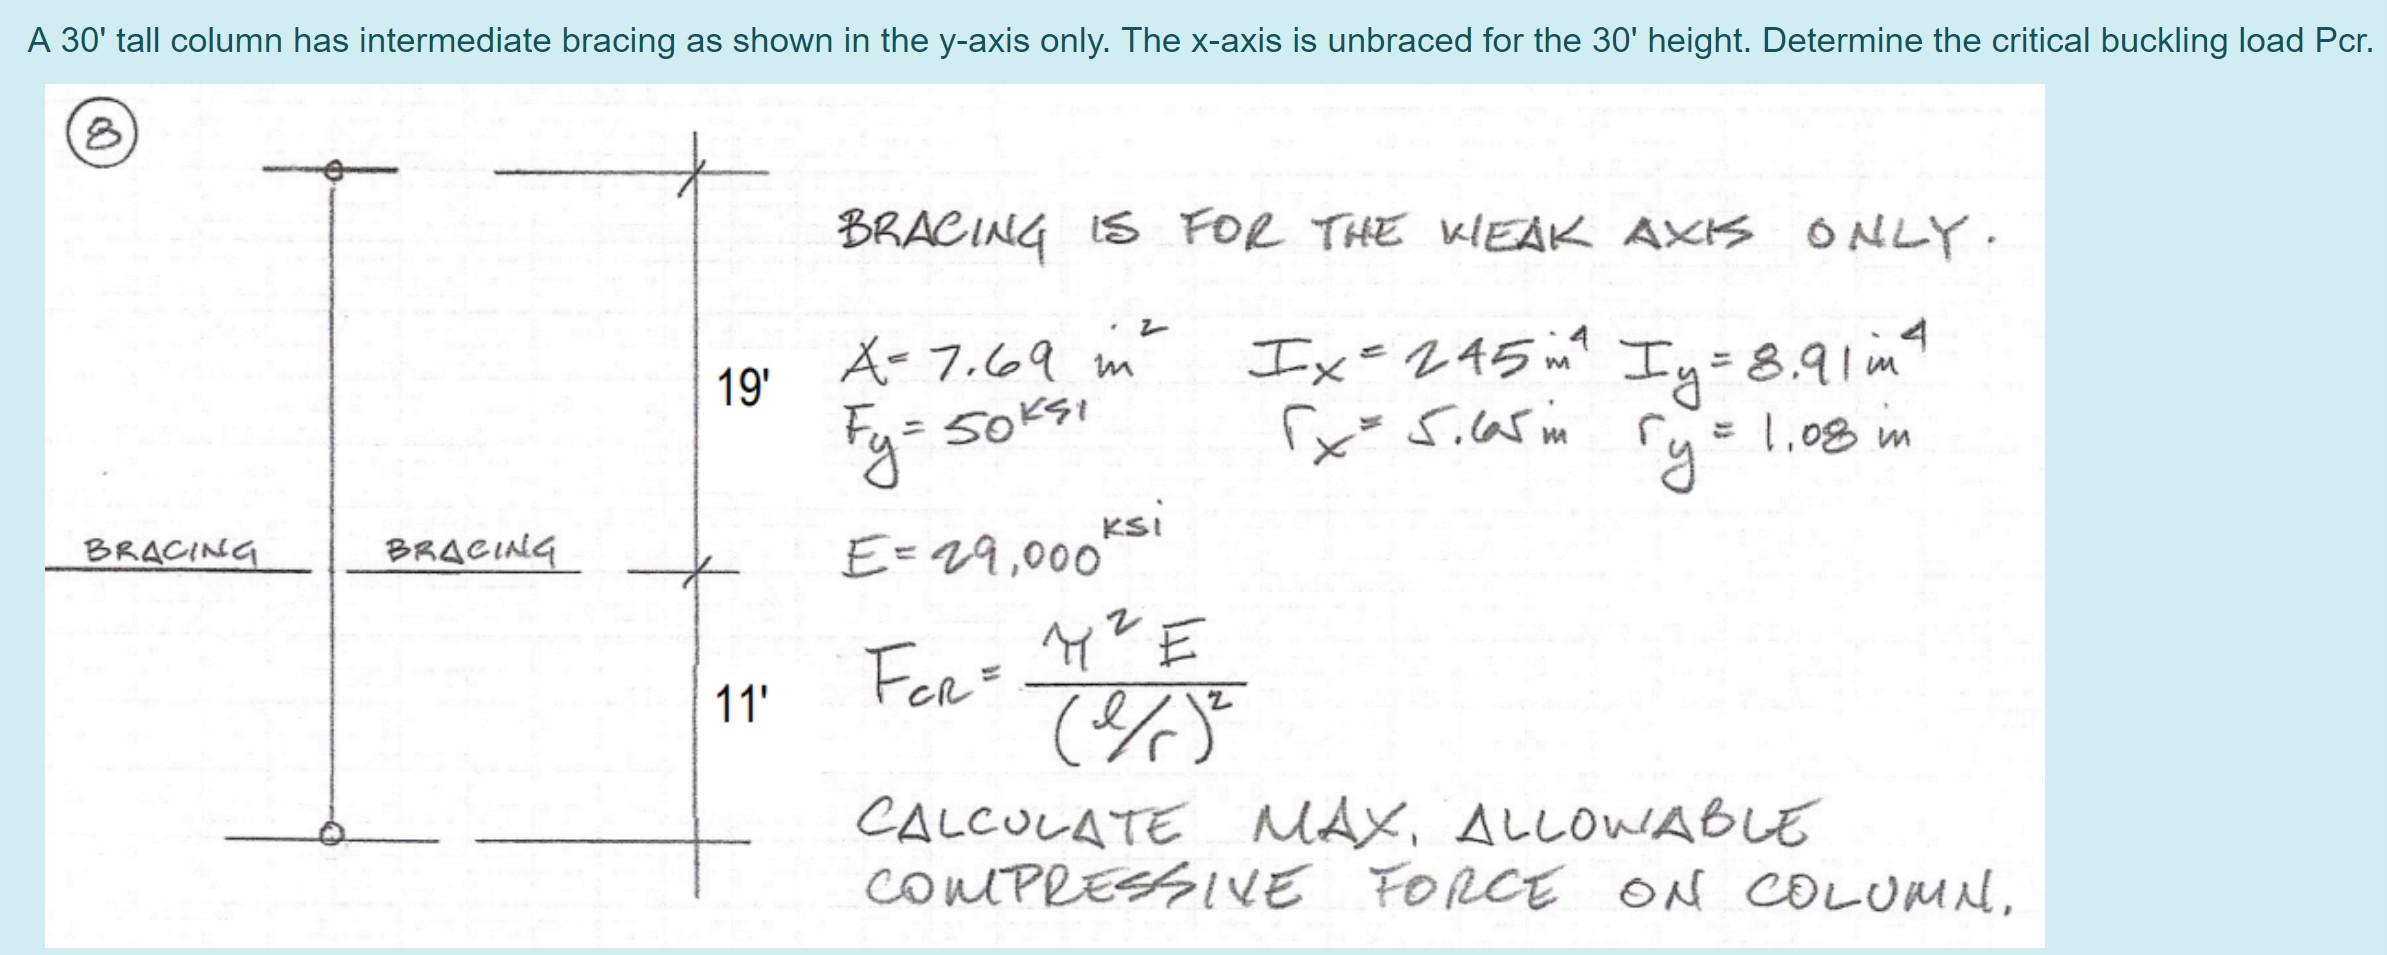 A 30' tall column has intermediate bracing as shown in the y-axis only. The x-axis is unbraced for the 30' height. Determine the critical buckling load Pcr.
8
BRACING IS FOR THE WEAK AXIS ONLY.
A = 7.69 in² Ix = 245 in⁴ Iy = 8.91 in⁴
19'
Fy = 50 KSI rx = 5.65 in ry = 1.08 in
BRACING BRACING
E = 29,000 ksi
FCR = π²E / (l/r)²
11'
CALCULATE MAX. ALLOWABLE
COMPRESSIVE FORCE ON COLUMN.